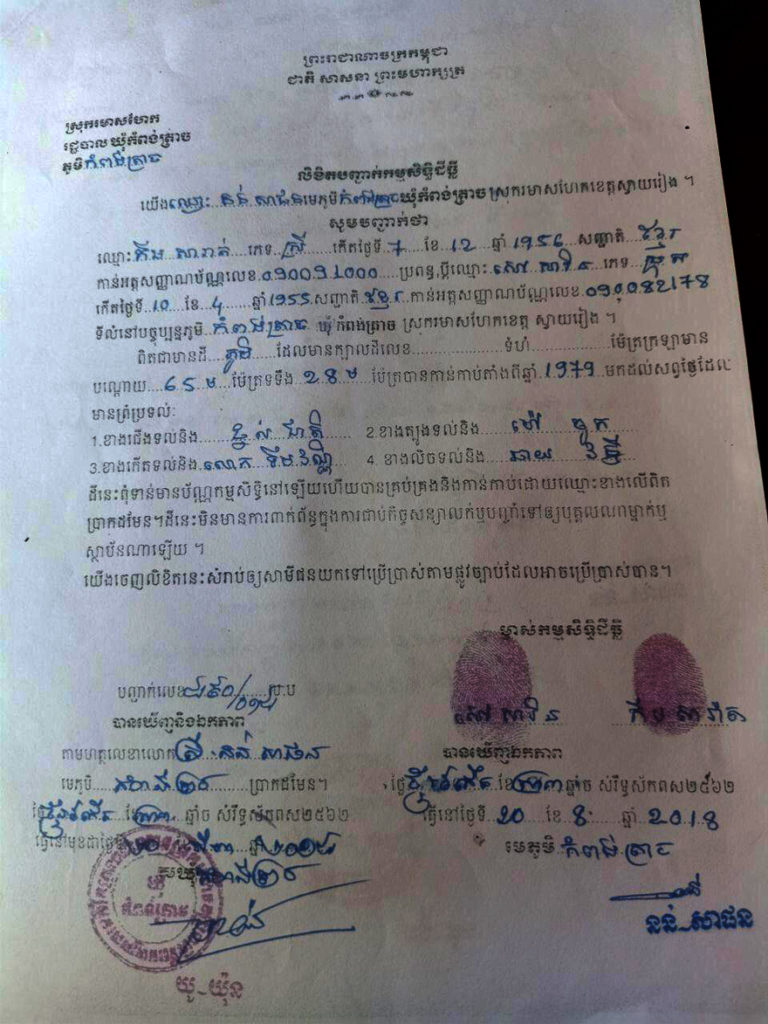 ព្រះរាជាណាចក្រកម្ពុជា
ជាតិ សាសនា ព្រះមហាក្សត្រ
ស្រុករមាសហែក
រដ្ឋបាល ឃុំកំពង់ត្រាច
ភូមិកំពង់ត្រាច
លិខិតបញ្ជាក់កម្មសិទ្ធិដីធ្លី
យើងឈ្មោះ នន់ សាផន មេភូមិកំពង់ត្រាចឃុំកំពង់ត្រាច ស្រុករមាសហែកខេត្តស្វាយរៀង ។
សូមបញ្ជាក់ថា
ឈ្មោះ គឹម សារ៉ាត់ ភេទ ស្រី កើតថ្ងៃទី 7 ខែ 12 ឆ្នាំ 1956 សញ្ជាតិ ខ្មែរ
កាន់អត្តសញ្ញាណប័ណ្ណលេខ 090091000 ប្រពន្ធ,ប្ដីឈ្មោះ សៅ សាវិន ភេទ ប្រុស
កើតថ្ងៃទី 10 ខែ 4 ឆ្នាំ 1955 សញ្ជាតិ ខ្មែរ កាន់អត្តសញ្ញាណប័ណ្ណលេខ 090082178
ទីលំនៅបច្ចុប្បន្នភូមិ កំពង់ត្រាច ឃុំ កំពង់ត្រាច ស្រុករមាសហែកខេត្ត ស្វាយរៀង ។
ពិតជាមានដី ភូមិ ដែលមានក្បាលដីលេខ ទំហំ ម៉ែត្រក្រឡាមាន
បណ្ដោយ 65ម ម៉ែត្រទទឹង 28ម ម៉ែត្របានកាន់កាប់តាំងពីឆ្នាំ 1979 មកដល់សព្វថ្ងៃដែល
មានព្រំប្រទល់:
1.ខាងជើងទល់និង ផ្លូវ ជាតិ 2.ខាងត្បូងទល់និង
3.ខាងកើតទល់និង លោក ទឹម វណ្ណី 4. ខាងលិចទល់និង
ដីនេះពុំទាន់មានប័ណ្ណកម្មសិទ្ធិនៅឡើយហើយបានគ្រប់គ្រងនិងកាន់កាប់ដោយឈ្មោះខាងលើពិត
ប្រាកដមែន។ដីនេះមិនមានការពាក់ព័ន្ធក្នុងការជាប់កិច្ចសន្យាលក់ឬបញ្ចាំទៅឲ្យបុគ្គលណាម្នាក់ឬ
ស្ថាប័នណាឡើយ ។
យើងចេញលិខិតនេះសំរាប់ឲ្យសាមីជនយកទៅប្រើប្រាស់តាមផ្លូវច្បាប់ដែលអាចប្រើប្រាស់បាន។
ម្ចាស់កម្មសិទ្ធិដីធ្លី
បញ្ជាក់លេខ ស.ប
សៅ សាវិន គឹម សារ៉ាត់
បានឃើញនិងឯកភាព
តាមហត្ថលេខាលោកស្រី នន់ សាផន
មេភូមិ កំពង់ត្រាច ប្រាកដមែន។
ឆ្នាំច សំរឹទ្ធស័កពស២៥៦២
ធ្វើនៅ
ឃុំ កំពង់ត្រាច
យូ_យ៉ុន
បានឃើញឯកភាព
ឆ្នាំច សំរឹទ្ធស័កពស២៥៦២
ធ្វើនៅថ្ងៃទី 20 ខែ 8 ឆ្នាំ 2018
មេភូមិ កំពង់ត្រាច
នន់ សាផន